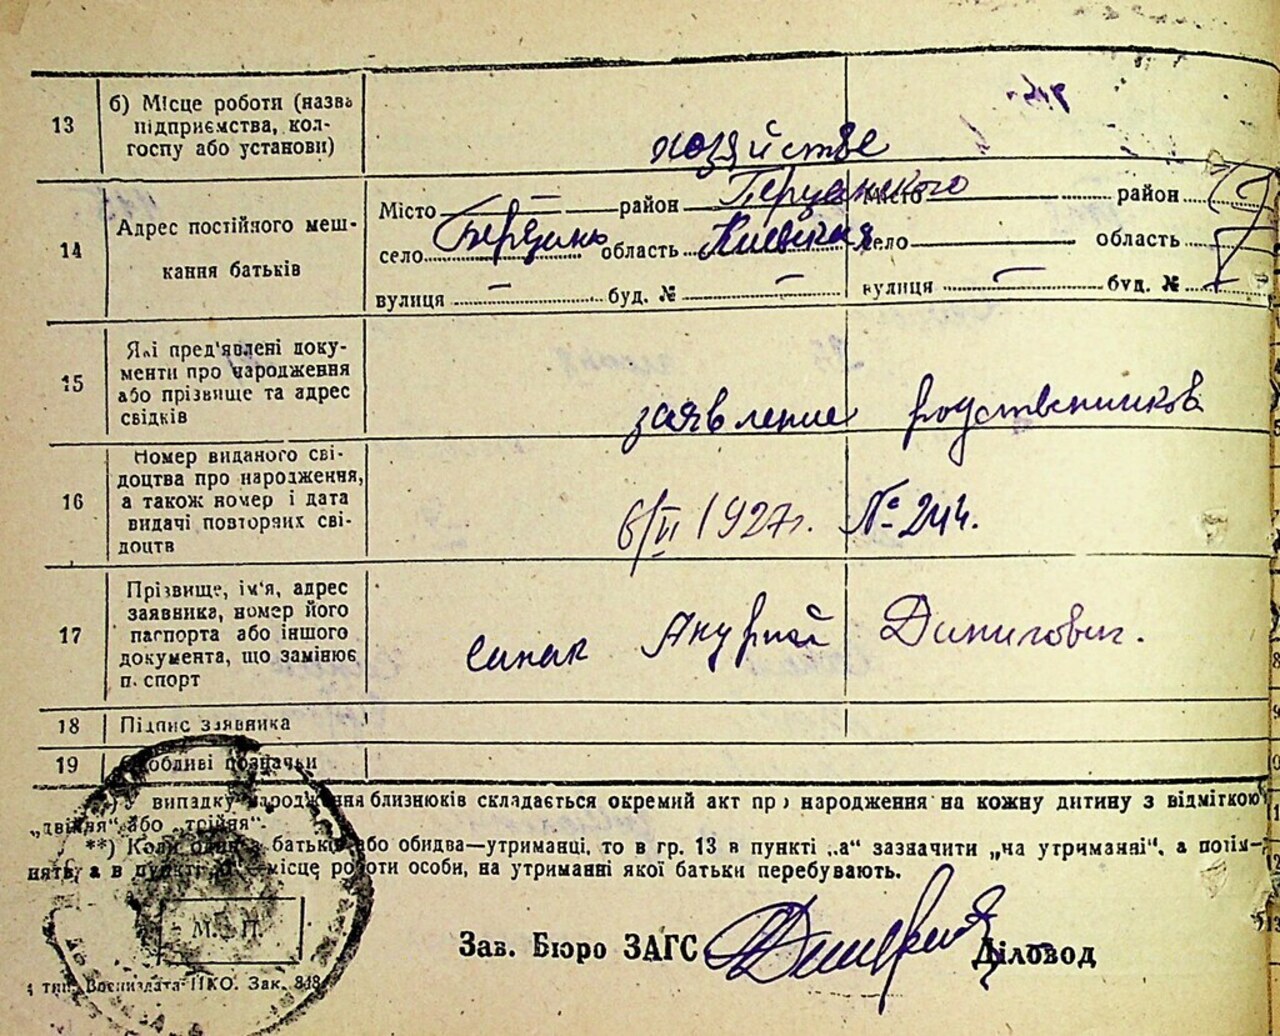 13
б) Місце роботи (назва
підприємства, кол-
госпу або установи)
хозяйстве
14
Адрес постійного меш-
кання батьків
Місто — район
Місто район
село Берзань область Киевская
село область
вулиця — буд. № —
вулиця — буд. №
15
Які пред'явлені доку-
менти про народження
або прізвище та адрес
свідків
заявление родственников
16
Номер виданого сві-
доцтва про народження,
а також номер і дата
видачі повторних сві-
доцтв
6/II 1927г. № 244.
17
Прізвище, ім'я, адрес
заявника, номер його
паспорта або іншого
документа, що замінює
п. спорт
Андрей Данилович.
18
Підпис заявника
19
Особливі позначки
*) У випадку народження близнюків складається окремий акт про народження на кожну дитину з відміткою
„двійня“ або „трійня“.
**) Коли один з батьків або обидва—утриманці, то в гр. 13 в пункті „а“ зазначити „на утриманні“, а потім—
нять, а в пункті —місце роботи особи, на утриманні якої батьки перебувають.
М. П.
Зав. Бюро ЗАГС
Діловод
тип. Воениздата НКО. Зак. 848